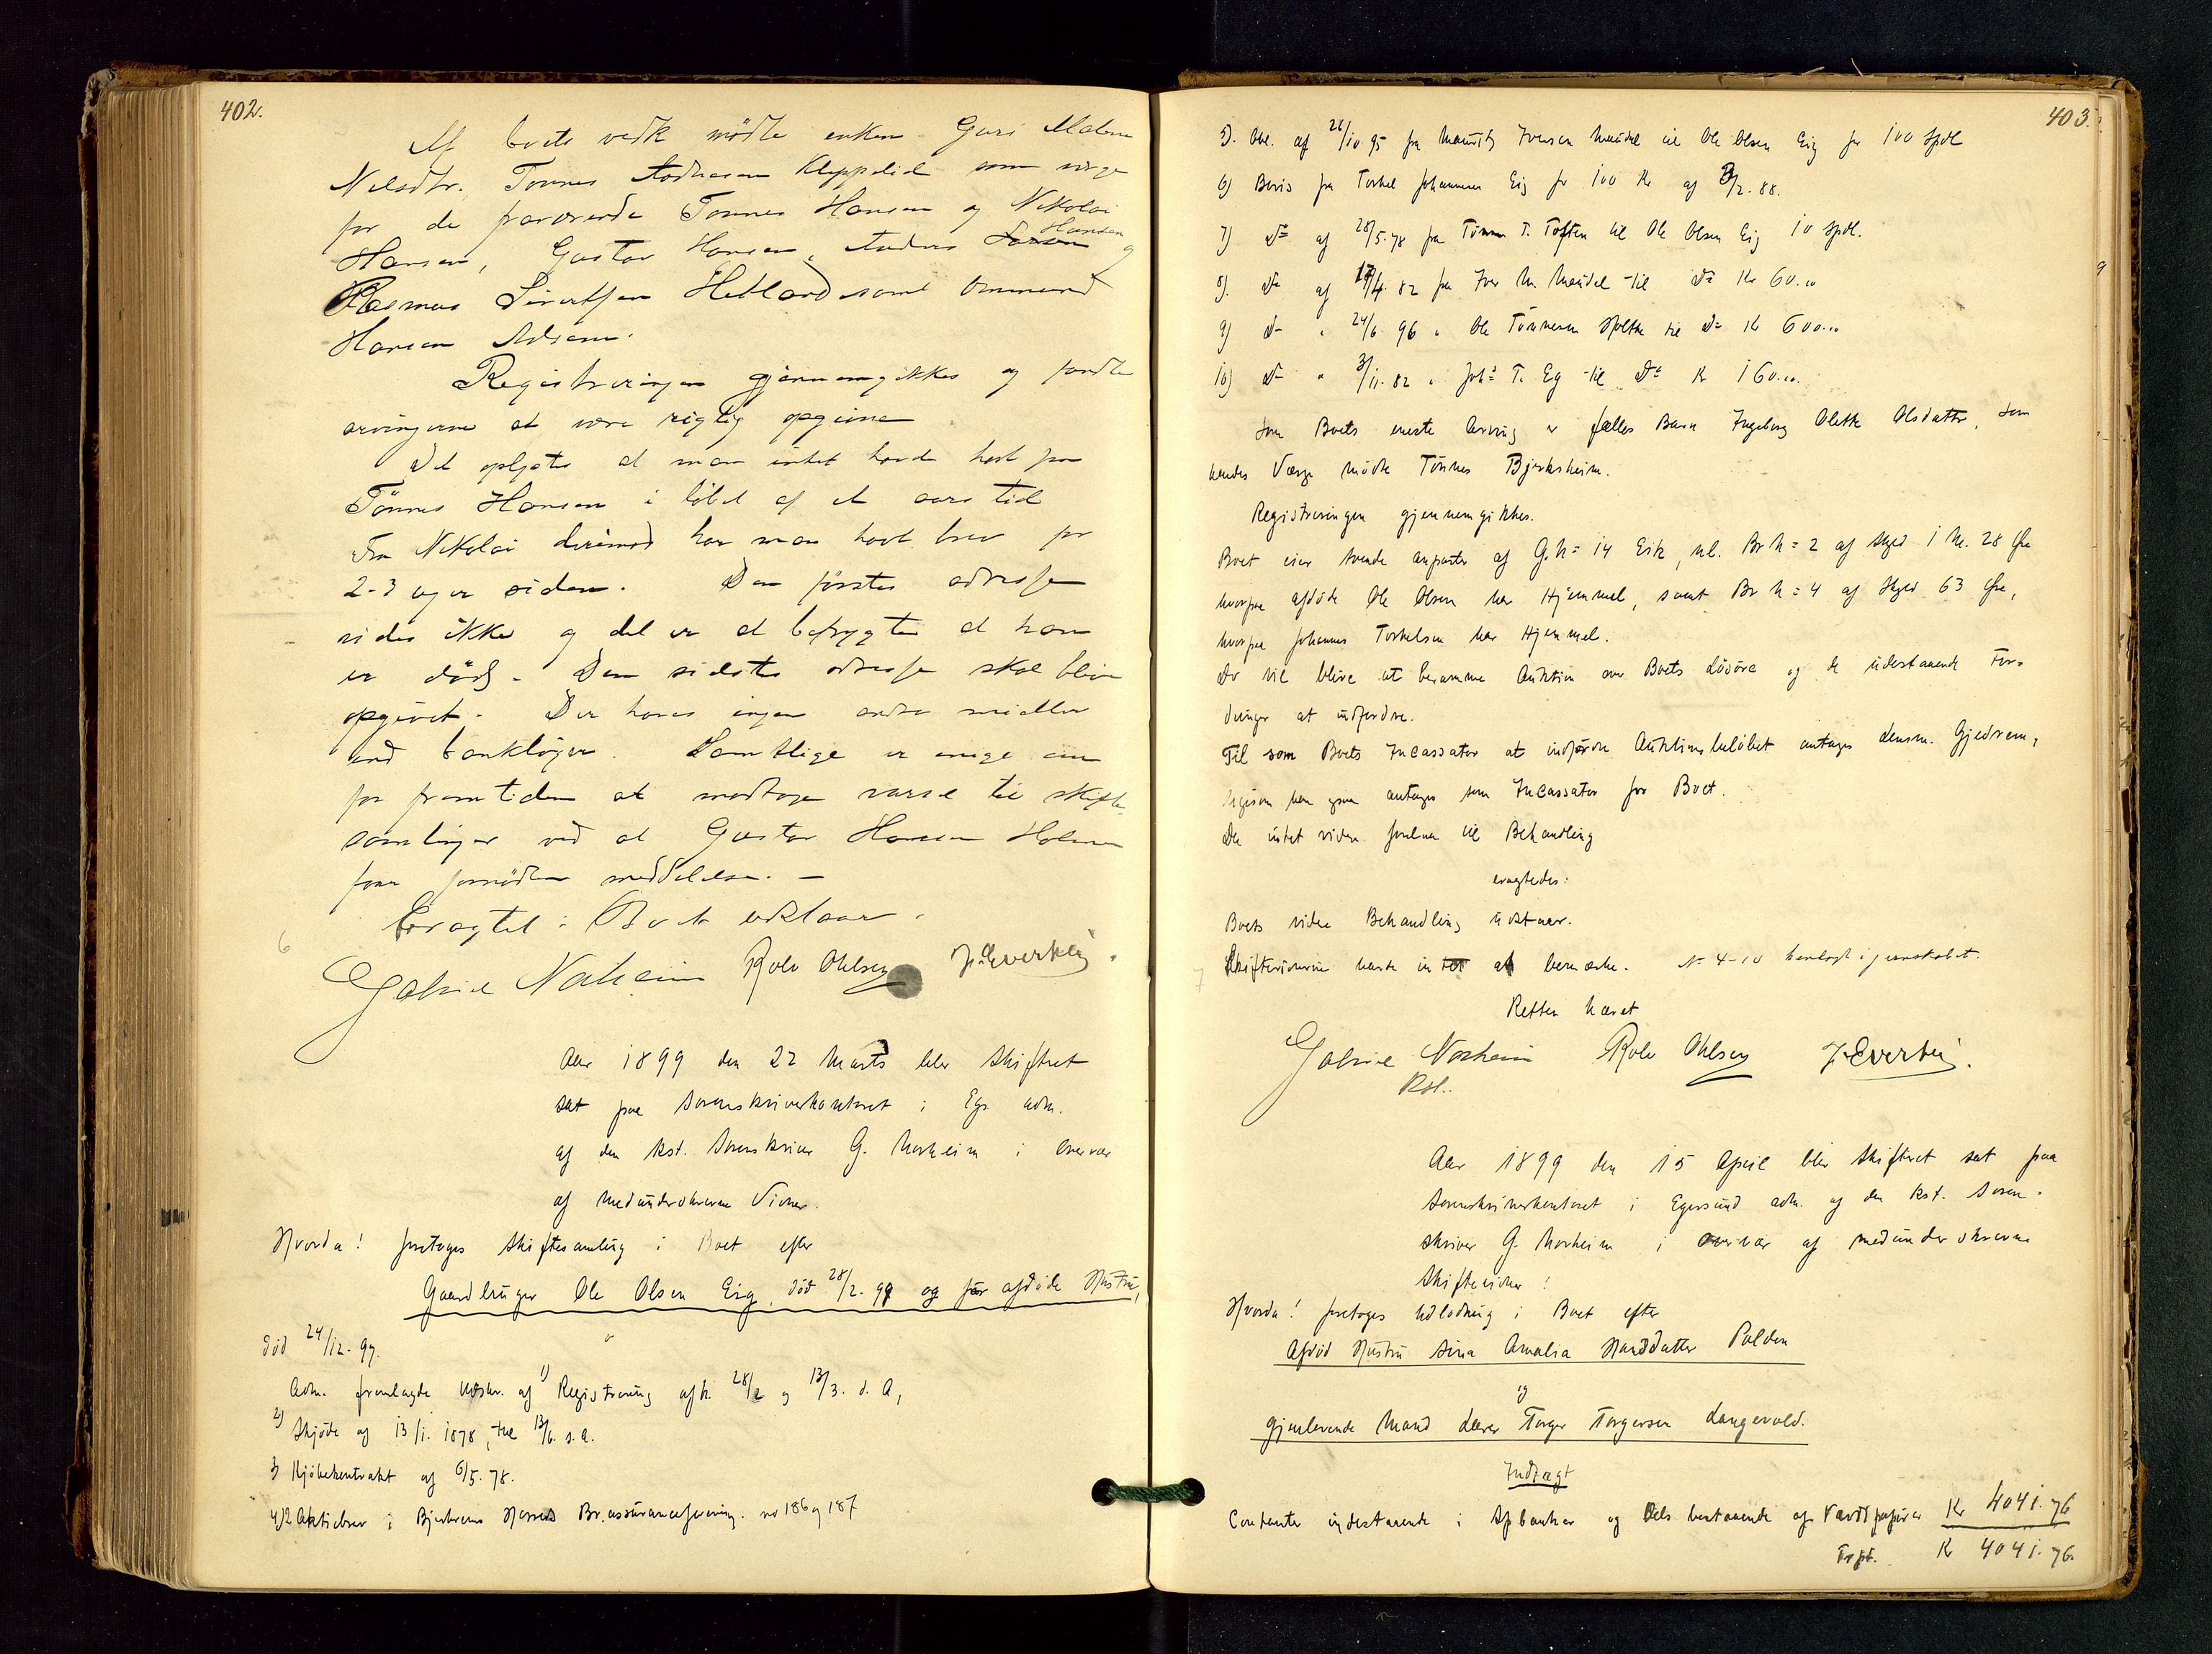 402.
Af boets vedk mødte enken Guri Malene
Nilsdtr. Tønnes Andreasen Kleppelid som verge
for de fraværende Tønnes Hansen og Nikolai
Hansen, Gustav Hansen, Anders Hansen og
Rasmus Sivertsen Hetland samt Ommund
Hansen
Registreringen gjennemgikkes og fandtes
arvingerne at være rigtig opgivne
Det oplystes at man intet havde hørt fra
Tønnes Hansen i løbet af et aars tid
Fra Nikolai derimod har man havt brev for
2-3 uger siden. Den førstes adresse
vides ikke og det er at befrygte at han
er død. Den sidstes adresse skal blive
opgivet. Der haves ingen andre midler
end bankbøger. Samtlige er enige om
for fremtiden at modtage varsel til skifte-
samlinger ved at Gustav Hansen Holmen
faar fornøden meddelelse. —
Eragtet: Boet udstaar.
Gabriel Norheim Rolv Ohlsen
Aar 1899 den 22 Marts blev Skifteret
sat paa Sorenskriverkontoret i Egs. adm.
af den kst. Sorenskriver G. Norheim i Overvær
af medunderskrevne Vidner.
Hvorda! foretoges Skiftesamling i Boet efter
Gaardbruger Ole Olsen Eig, død 28/2. 99 og før afdøde Hustru,
død 24/12. 97.
Adm. fremlagde Udskr. af 1) Registrering afh. 28/2 og 13/3. d. A,
2) Skjøde af 13/1. 1878, tnl 13/6. s. A.
3) Kjøbekontrakt af 6/5. 78.
4) 2 Aktiebrev i Bjerkreims Herreds Br.assuranceforening. no 186 og 187
403.
5). Obl. af 26/10. 95 fra Mauritz Iversen Maudal til Ole Olsen Eig for 100 Spdl
6) Bevis fra Torkel Johannesen Eig for 100 Kr af 3/2. 88.
7) Do af 28/5. 78 fra Tønnes T. Toften til Ole Olsen Eig 10 Spdl.
8). Do af 17/4. 82 fra Iver M. Maudal til Do Kr 60.00
9) Do " 24/6. 96 " Ole Tønnesen til Do Kr 600.00
10) Do " 3/11. 82 " Johs T. Eg til Do Kr 160.00.
Som Boets eneste Arving er fælles Barn Ingeborg Olette Olsdatter, som
hendes Værge mødte Tønnes Bjerksheim.
Registreringen gjennemgikkes.
Boet eier tvende anparter af G.No 14 Eik, nl. Br No 2 af Skyld 1 M. 28 Øre
hvorpaa afdøde Ole Olsen har Hjemmel, samt Br No 4 af Skyld 63 Øre,
hvorpaa Johannes Torkelsen har Hjemmel.
Der vil blive at beramme Auktion over Boets Løsøre og de udestaaende For-
dringer at indfordre.
Til som Boets Incassator at indfordre Auktionsbeløbet antages lensm. Gjedrem,
ligesom han ogsaa antages som Incassator for Boet.
Da intet videre forelaa til Behandling
eragtedes:
Boets videre Behandling udstaar.
Skiftevidnerne havde intet at bemærke. No 4-10 henlagt i jernskabet.
Retten hævet
Gabriel Norheim Rolv Ohlsen
Kst.
Aar 1899 den 15 April blev Skifteret sat paa
Sorenskriverkontoret i Egersund adm. af den kst. Soren-
skriver G. Norheim i Overvær af medunderskrevne
Skiftevidner!
Hvorda! foretoges Udlodning i Boet efter
Afdød Hustru Sina Amalia Hansdatter Polden
og
gjenlevende Mand Lærer Torger Torgersen Langevold.
Indtægt
Contanter indestaaende i Spbanker og Dels bestaaende af Værdipapirer Kr 4041.76
Trpt. Kr 4041.76